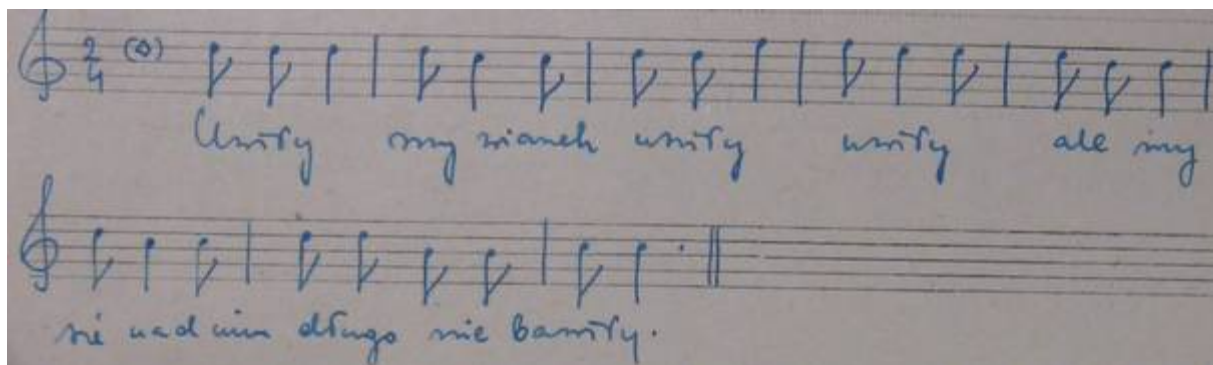 2/4 (◊)
Uwiły my wianek uwiły uwiły ale my
się nad nim długo nie bawiły.